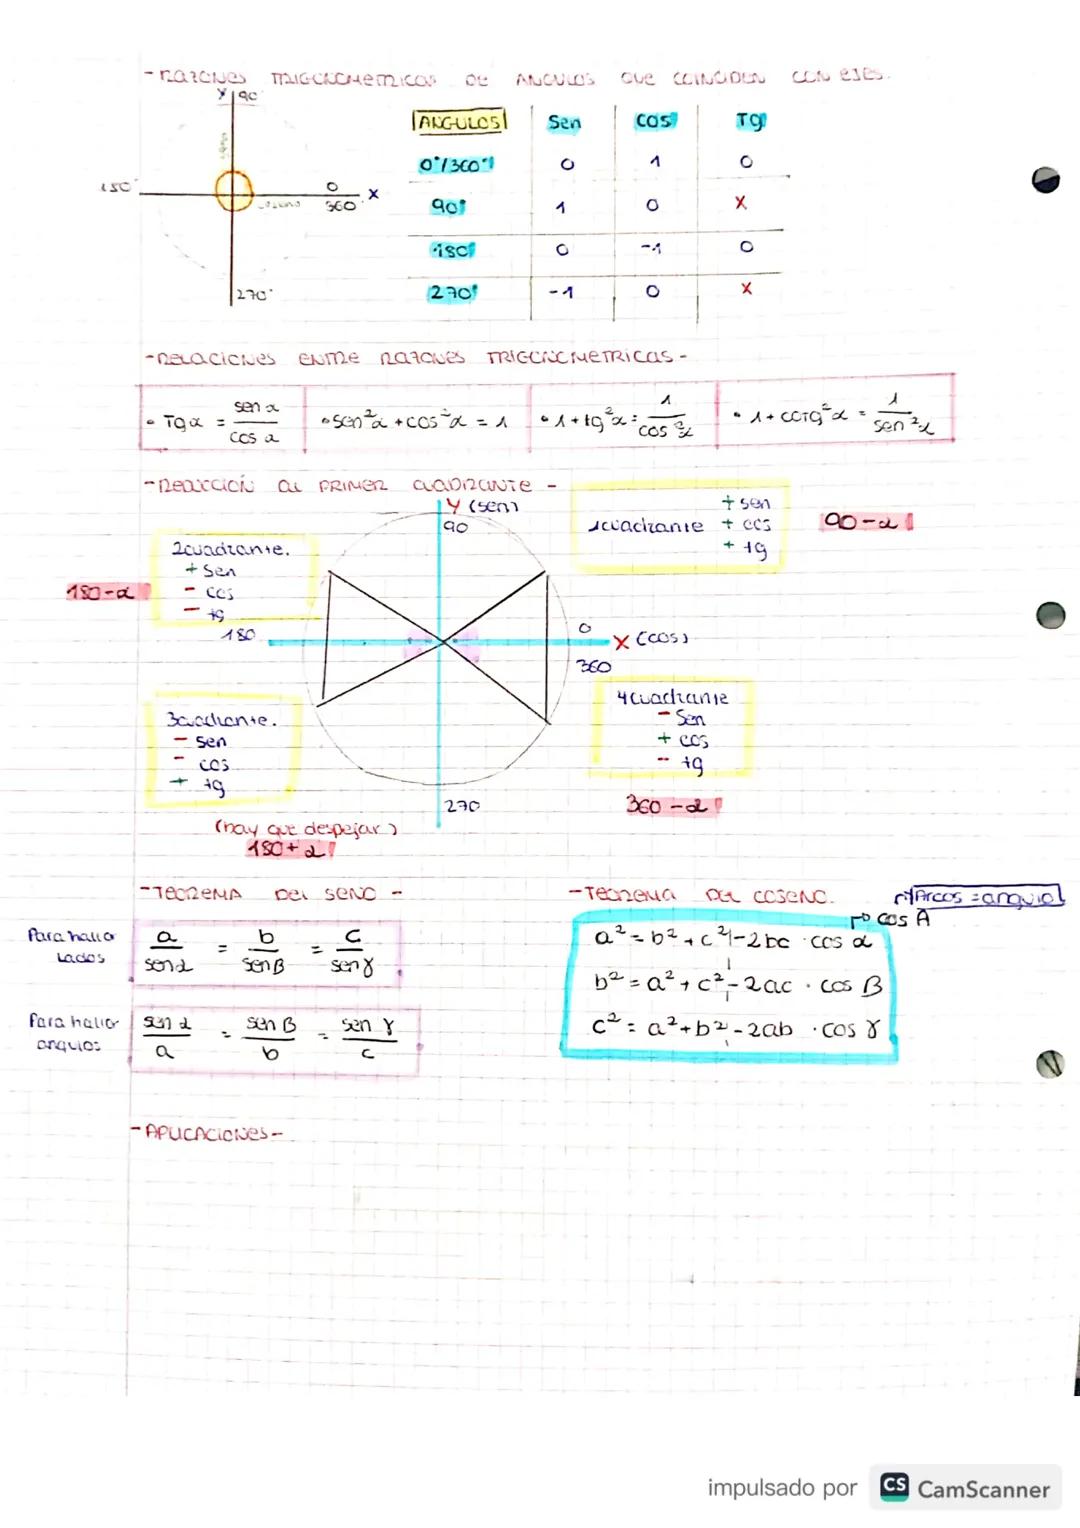 - RAZONES TRIGONOMETRICAS DE ANGULOS QUE COINCIDEN CON EJES.
Y 90
180°
0
360
X
270°
ANGULOS Sen cos Tg
0°/360° 0 1 0
90° 1 0 X
180° 0 -1 0
270° -1 0 X
- RELACIONES ENTRE RAZONES TRIGONOMETRICAS -
• Tg α = sen α / cos α • sen²α + cos²α = 1 • 1 + tg²α = 1 / cos²α • 1 + cotg²α = 1 / sen²α
- REDUCCIÓN AL PRIMER CUADRANTE -
Y (sen)
90
1cuadrante
+ sen
+ cos
+ tg
90-α
2cuadrante.
+ sen
- cos
- tg
180-α
180
0
X (cos)
360
3cuadrante.
- sen
- cos
+ tg
4cuadrante
- Sen
+ cos
- tg
270
360 - α
(hay que despejar)
180 + α
- TEOREMA DEL SENO -
Para hallar lados
a / sen α = b / sen β = c / sen γ
Para hallar angulos
sen α / a = sen β / b = sen γ / c
- TEOREMA DEL COSENO.
Arcos = angulo
cos A
a² = b² + c² - 2bc · cos α
b² = a² + c² - 2ac · cos β
c² = a² + b² - 2ab · cos γ
- APLICACIONES -
impulsado por CS CamScanner